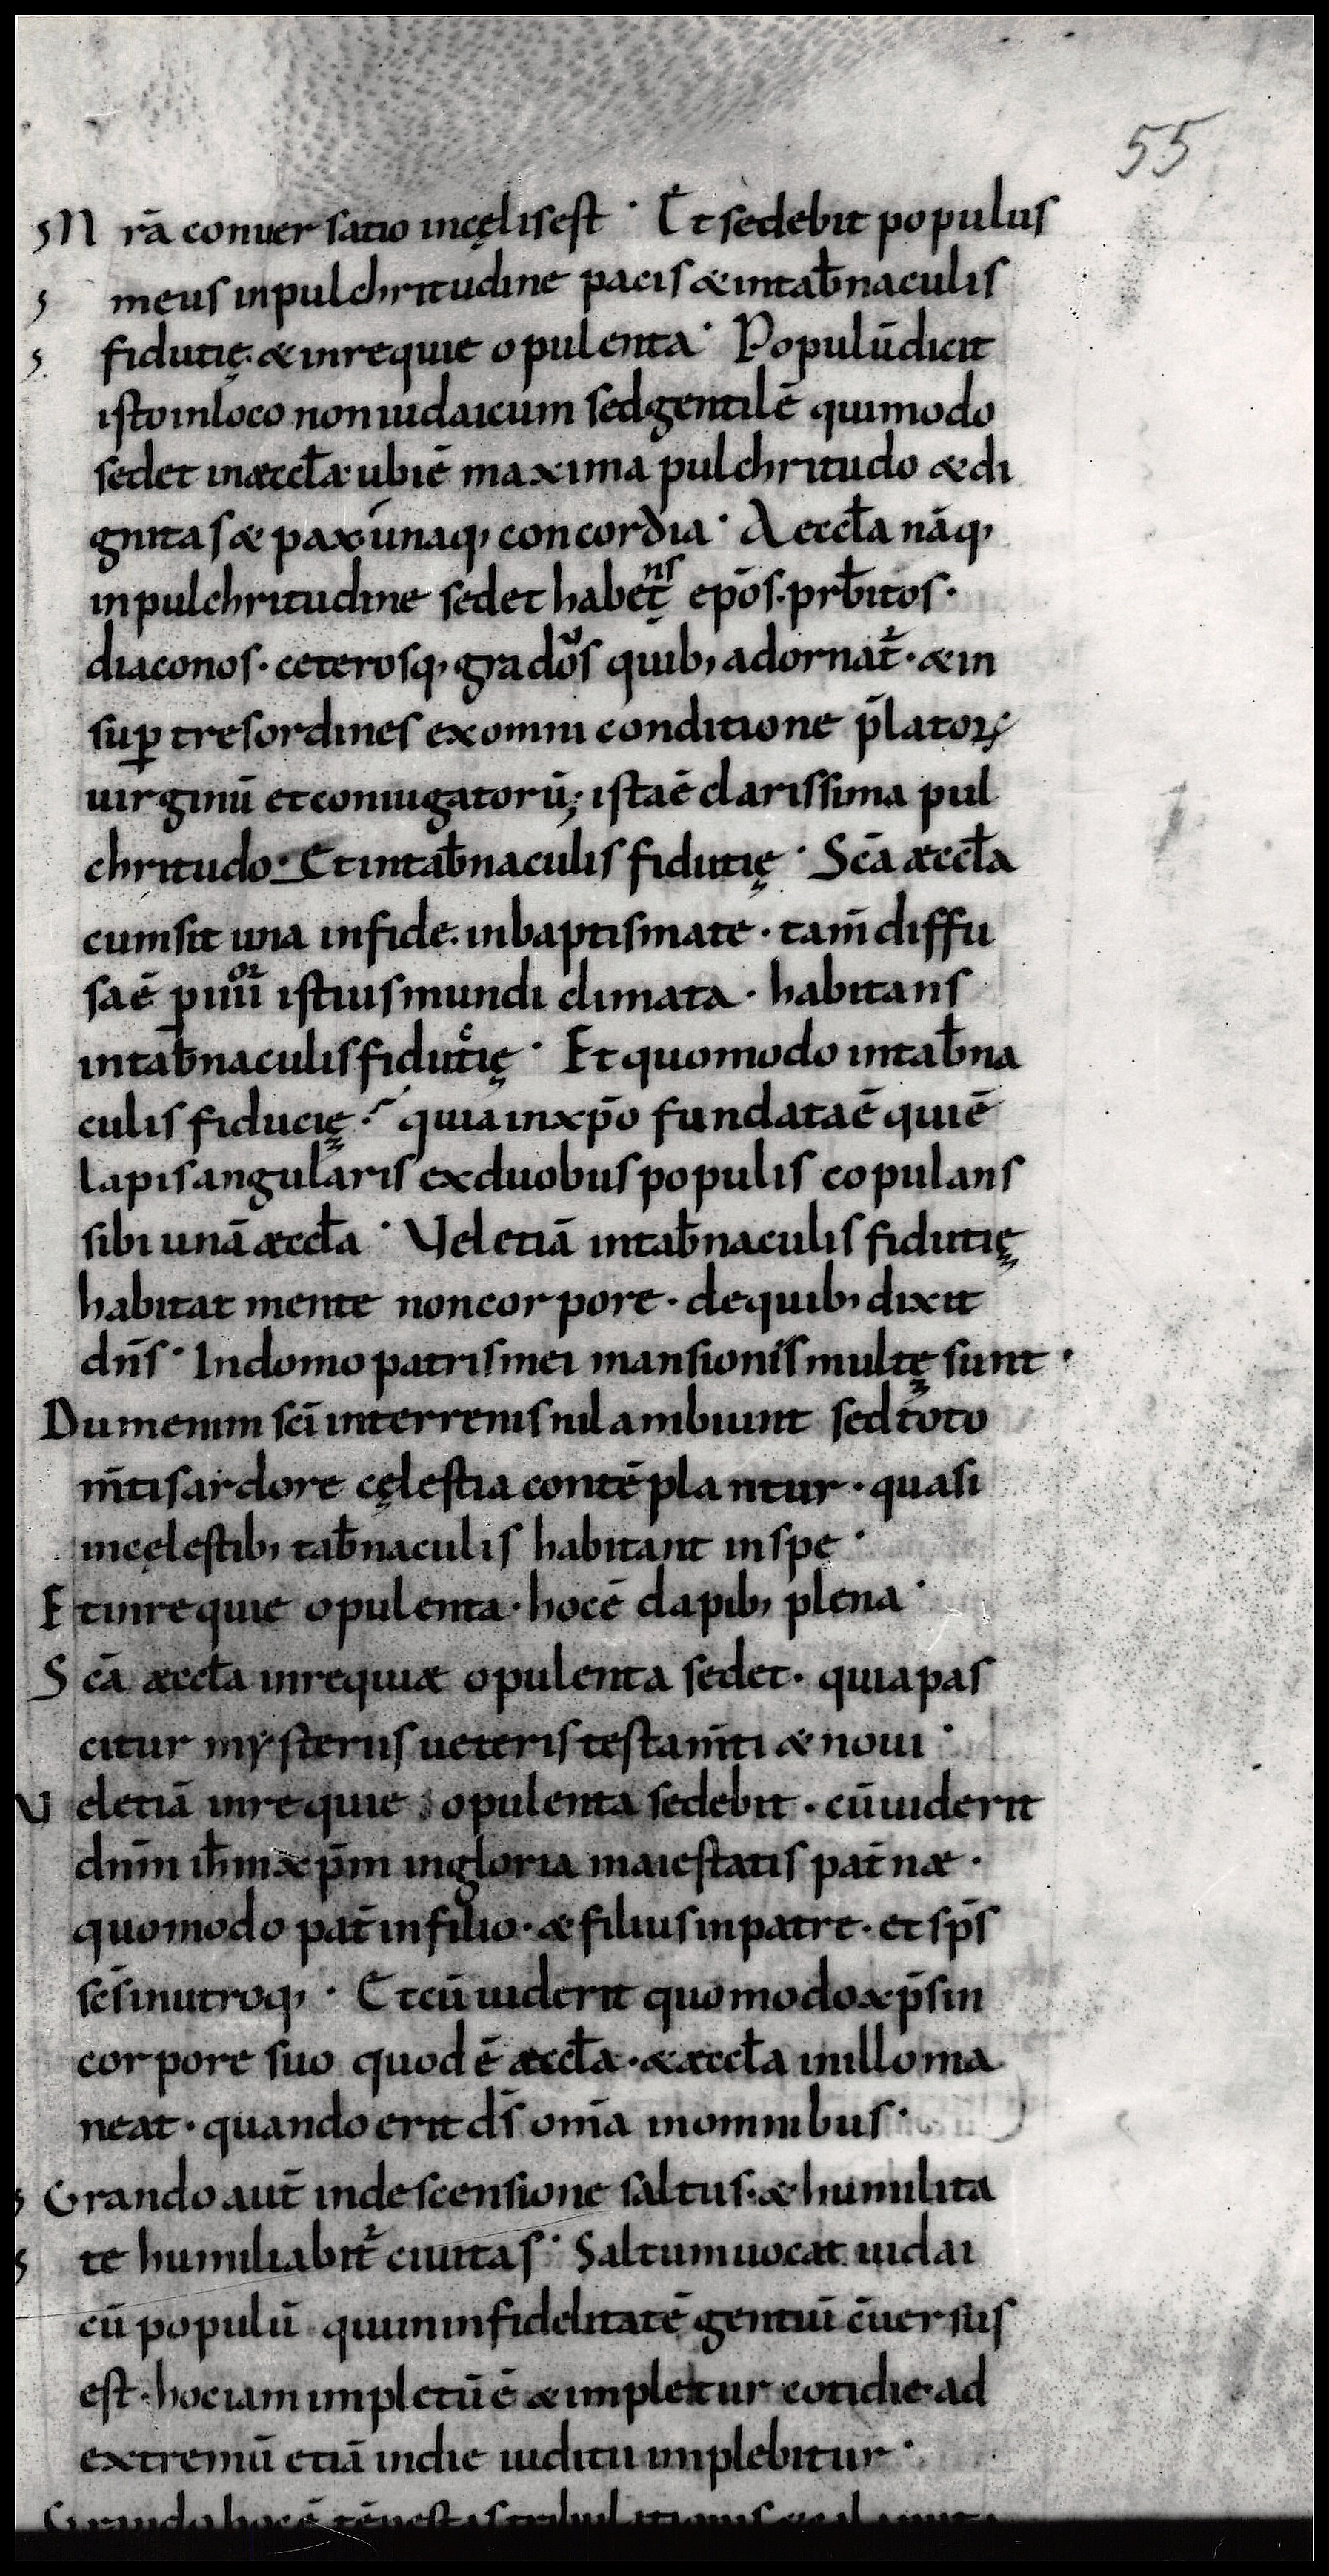 55
N rā conuersatio incęlisest · Et sedebit populus
meus inpulchritudine pacis & intab̄naculis
fidutię· & inrequie opulenta · Populū dicit
isto inloco noniudaicum sed gentilē quimodo
sedet inæccl̄a· ubiē maxima pulchritudo & di
gnitas & pax· unaq, concordia · Aeccl̄a nāq,
inpulchritudine sedet habet̄ ns ep̄os. prb̄itos.
diaconos. ceterosq, gradōs quib, adornat̄· & in
sup tres ordines exomni conditione p̄latoꝝ
uirginū et coniugatorū; istaē clarissima pul
chritudo· Et intab̄naculis fidutię · Sc̄a æccl̄a
cumsit una infide. inbaptismate · tam̄ diffu
saē p iiii or istius mundi climata · habitans
intab̄naculis fidutię · Et quomodo intab̄na
culis fiducię· quia inxp̄o fundataē quiē
lapis angularis exduobus populis copulans
sibi unā æccl̄a · Vel etiā intab̄naculis fidutię
habitat mente noncorpore · dequib, dixit
dn̄s · Indomo patrismei mansionis multę sunt ·
Dumenim sc̄i interrenis nil ambiunt sed toto
m̄tis ardore cęlestia contēplantur · quasi
incęlestib, tab̄naculis habitant inspe ·
Et inrequie opulenta · hocē dapib, plena ·
Sc̄a æccl̄a inrequiæ opulenta sedet · quia pas
citur mysteriis ueteris testam̄ti & noui ·
Vel etiā inrequie opulenta sedebit · cū uiderit
dn̄m ih̄m xp̄m ingloria maiestatis pat̄næ ·
quomodo pat̄ infilio · & filius inpatre · et sp̄s
sc̄s inutroq, · Et cū uiderit quomodo xp̄s in
corpore suo quod ē æccl̄a · & æccl̄a inillo ma
neat · quando erit ds̄ om̄a inomnibus ·
Grando aut̄ indescensione saltus· & humilita
te humiliabit̄ ciuitas · Saltum uocat iudai
cū populū quiininfidelitatē gentiū c̄uersus
est · hociam impletū ē & impletur cotidie· ad
extremū etiā indie iuditii implebitur ·